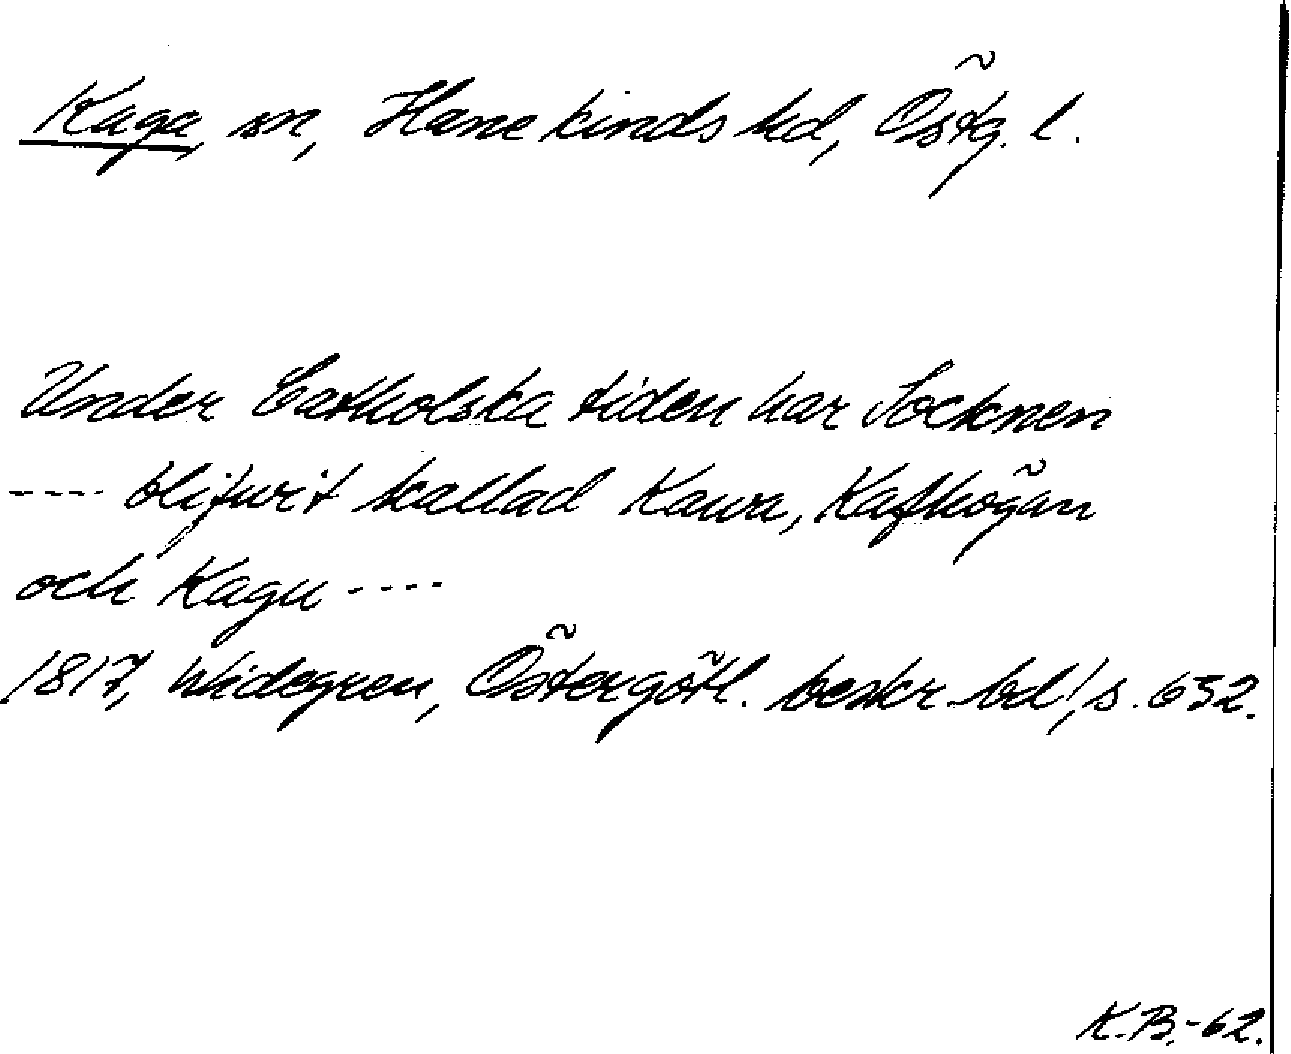 Kaga, sn, Hanekinds hd, Östg. l.
Under Catholska tiden har Socknen
---- blifwit kallad Kawa, Kafhögan
och Kagu ----
1817, Widegren, Östergötl. beskr bd 1, s. 632.
K.B.-62.